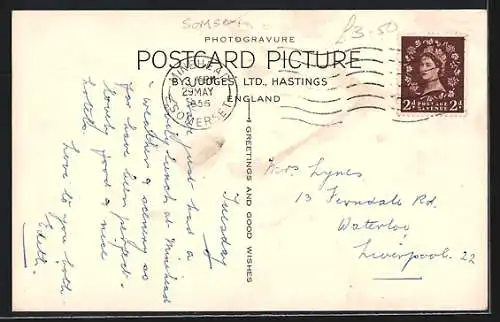 SOMSET
£3-50
PHOTOGRAVURE
POSTCARD PICTURE
BY JUDGES LTD., HASTINGS
ENGLAND
MINEHEAD
29 MAY
1956
SOMERSET
POSTAGE
REVENUE
2d 2d
GREETINGS AND GOOD WISHES
Tuesday
Have just had a
lovely lunch at Minehead
weather & scenery so
far have been perfect.
Lovely food & nice
hotels.
Love to you both
Edith.
Mrs Lynes
13 Ferndale Rd.
Waterloo
Liverpool. 22